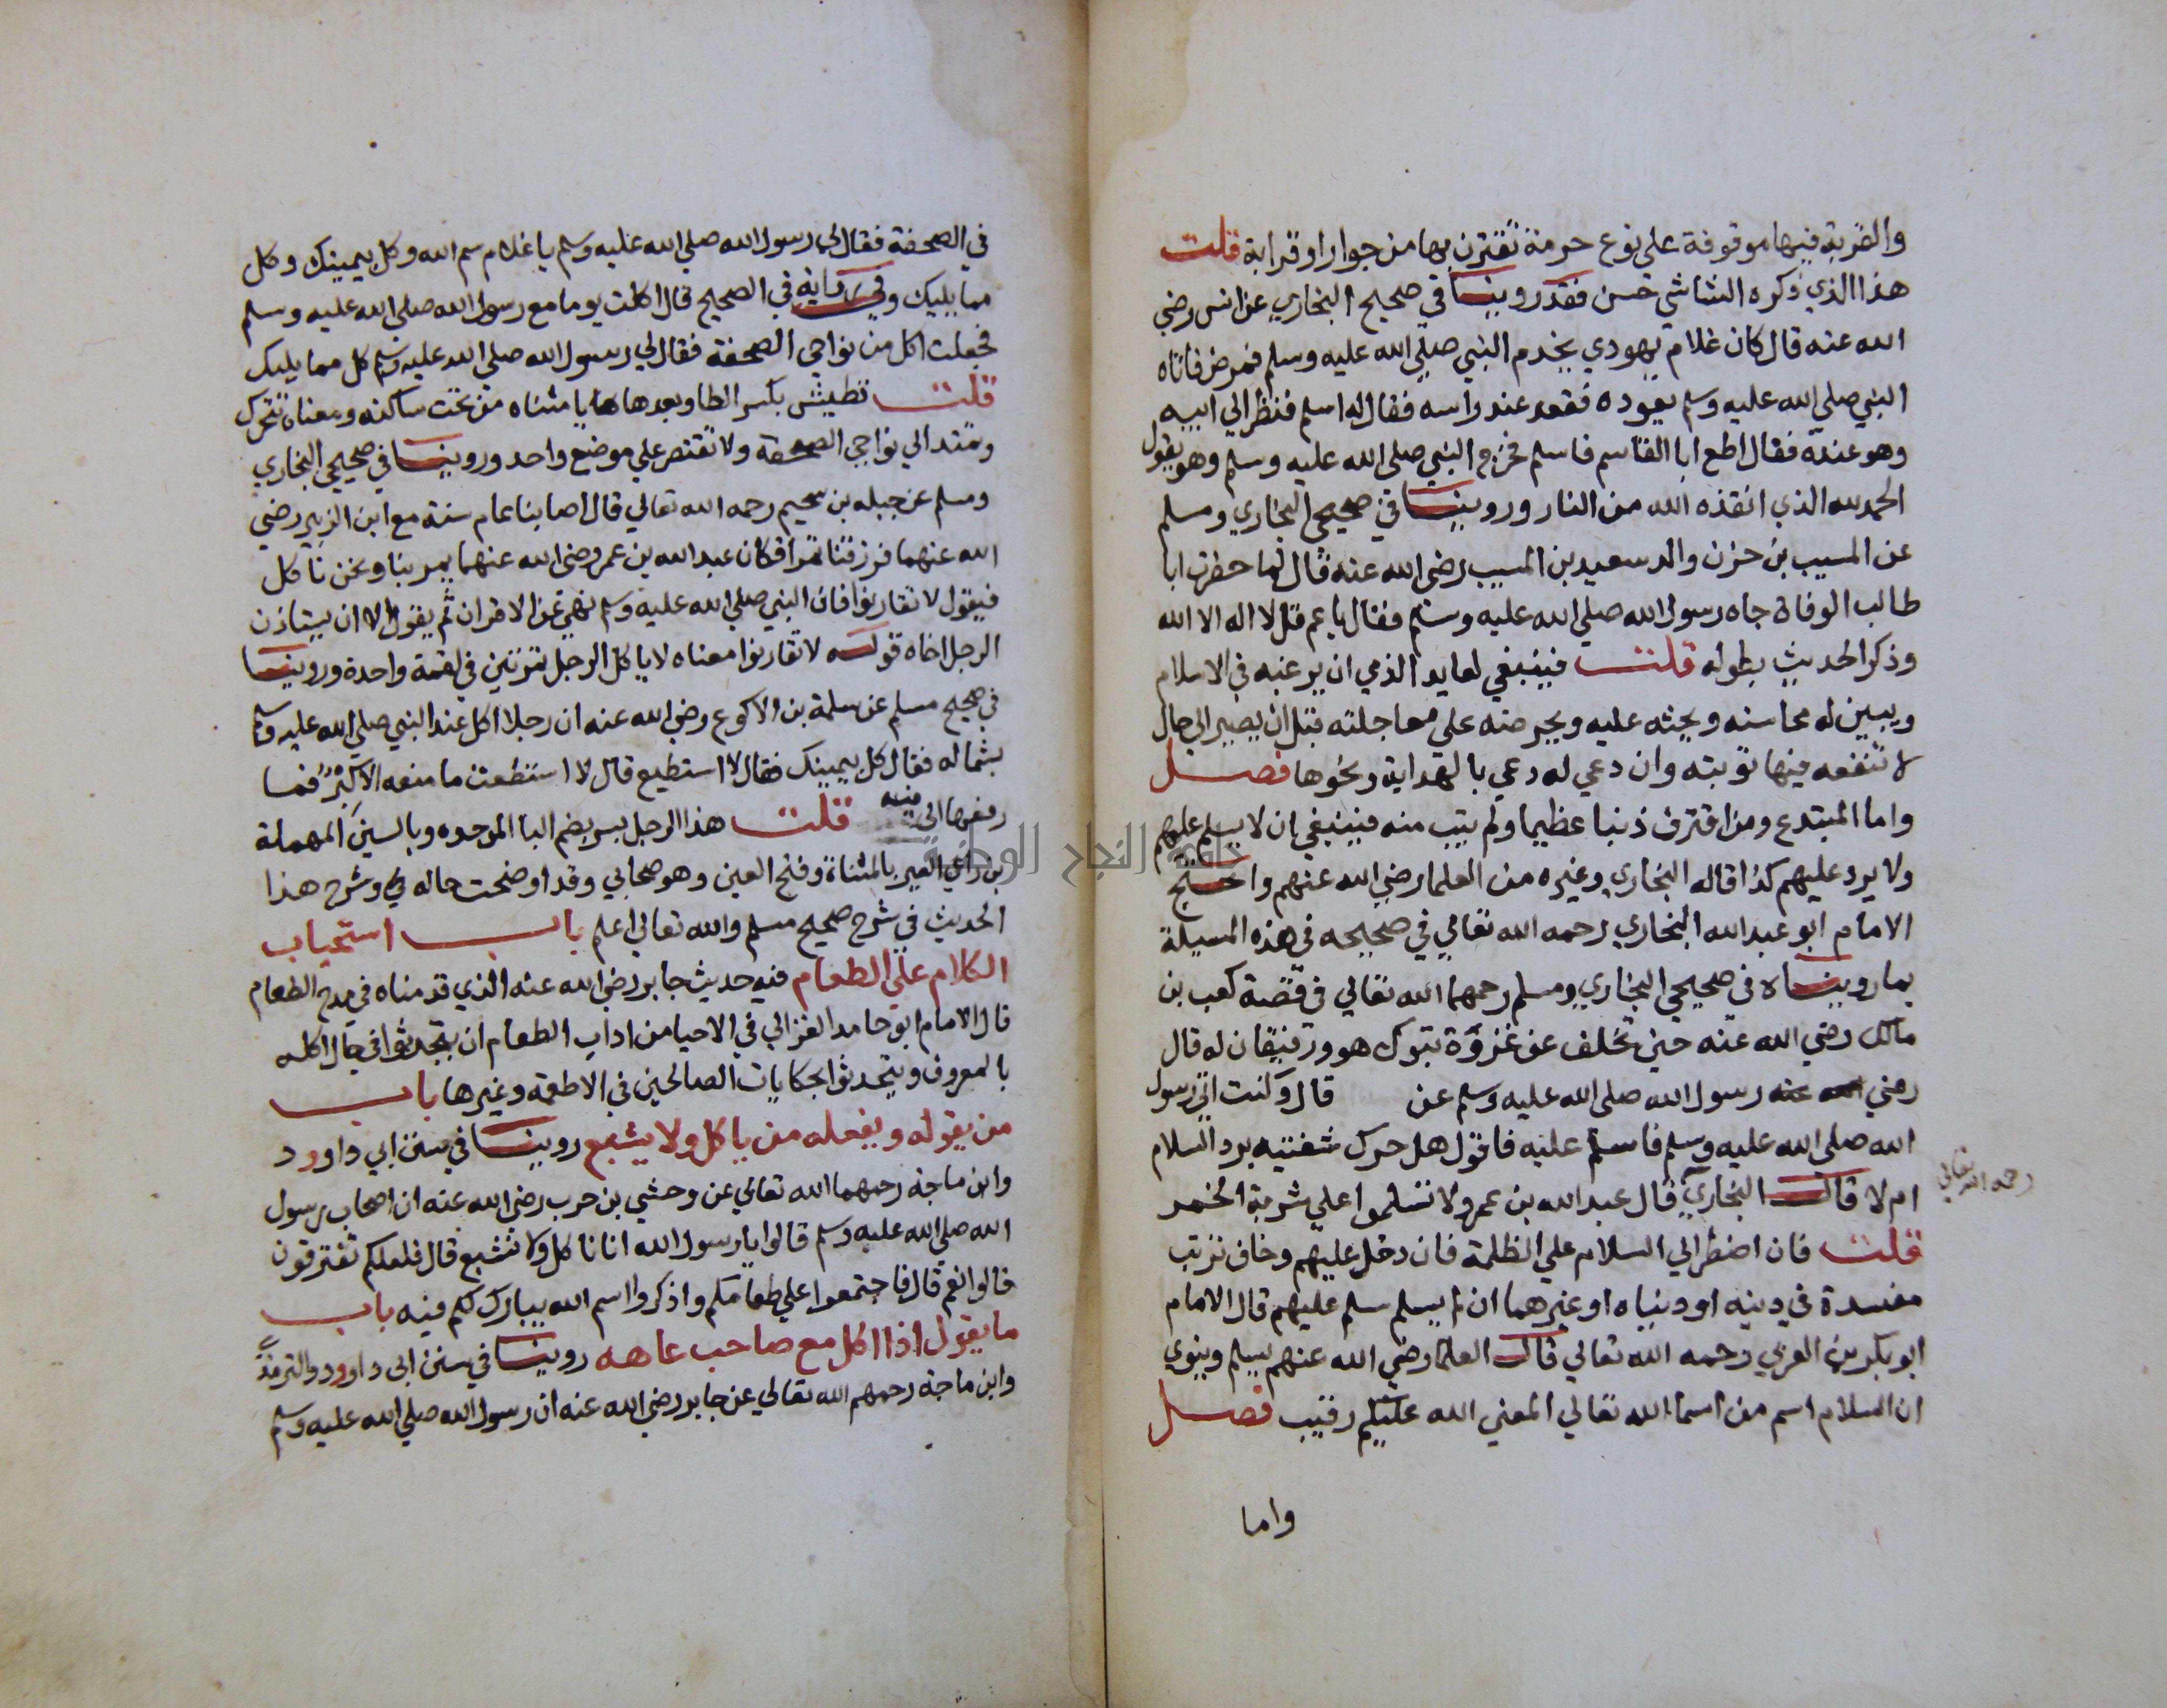 والقربة فيها موقوفة على نوع حرمة تقترن بها من جوار او قرابة قلت
هذا الذي ذكره الشاشي حسن فقد روينا في صحيح البخاري عن انس رضي
الله عنه قال كان غلام يهودي يخدم النبي صلى الله عليه وسلم فمرض فاتاه
النبي صلي الله عليه وسلم يعوده فقعد عند راسه فقال له اسلم فنظر الي ابيه
وهو عنده فقال اطع ابا القاسم فاسلم فخرج النبي صلى الله عليه وسلم وهو يقول
الحمد لله الذي انقذه الله من النار وروينا في صحيحي البخاري ومسلم
عن المسيب بن حزن والد سعيد بن المسيب رضي الله عنه قال لما حضرت ابا
طالب الوفاة جاه رسول الله صلي الله عليه وسلم فقال يا عم قل لا اله الا الله
وذكر الحديث بطوله قلت فينبغي لعايد الذمي ان يرغبه في الاسلام
ويبين له محاسنه ويحثه عليه ويحرضه على معاجلته قبل ان يصير الي حال
لا تنفعه فيها توبته وان دعي له دعي بالهداية ونحوها فصل
واما المبتدع ومن اقترف ذنبا عظيما ولم يتب منه فينبغي ان لا يسلم عليهم
ولا يرد عليهم كذا قاله البخاري وغيره من العلما رضي الله عنهم واحتج
الامام ابو عبد الله البخاري رحمه الله تعالي في صحيحه في هذه المسيلة
بما رويناه في صحيحي البخاري ومسلم رحمهما الله تعالي في قصة كعب بن
مالك رضي الله عنه حين تخلف عن غزوة تبوك هو ورفيقان له قال
رضي الله عنه رسول الله صلى الله عليه وسلم عن قال وكنت اتي رسول
الله صلى الله عليه وسلم فاسلم عليه فاقول هل حرك شفتيه برد السلام
ام لا قال البخاري قال عبد الله بن عمرو لا تسلموا علي شربة الخمر
رحمه الله تعالي
قلت فان اضطر الي السلام علي الظلمة فان دخل عليهم وخاف ترتب
مفسدة في دينه او دنياه او غيرهما ان لم يسلم سلم عليهم قال الامام
ابو بكر بن العربي رحمه الله تعالي قال العلما رضي الله عنهم يسلم وينوي
ان السلام اسم من اسما الله تعالي المعني الله عليكم رقيب فصل
واما
في الصحفة فقال لي رسول الله صلي الله عليه وسلم يا غلام سم الله وكل بيمينك وكل
مما يليك وفي رواية في الصحيح قال اكلت يوما مع رسول الله صلى الله عليه وسلم
فجعلت اكل من نواحي الصحفة فقال لي رسول الله صلى الله عليه وسلم كل مما يليك
قلت تطيش بكسر الطا وبعدها يا مثناه من تحت ساكنه ومعناه تتحرك
وتمتد الي نواحي الصحفة ولا تقتصر علي موضع واحد وروينا في صحيحي البخاري
ومسلم عن جبله بن سحيم رحمه الله تعالي قال اصابنا عام سنة مع ابن الزبير رضي
الله عنهما فرزقنا تمرا فكان عبد الله بن عمر رضي الله عنهما يمر بنا ونحن ناكل
فيقول لا تقارنوا فان النبي صلي الله عليه وسلم نهي عن الاقران ثم يقول الا ان يستاذن
الرجل اخاه قوله لا تقارنوا معناه لا ياكل الرجل تمرتين في لقمة واحدة وروينا
في صحيح مسلم عن سلمة بن الاكوع رضي الله عنه ان رجلا اكل عند النبي صلي الله عليه وسلم
بشماله فقال كل بيمينك فقال لا استطيع قال لا استطعت ما منعه الا الكبر فما
رفعها الى فيه قلت هذا الرجل بسر بضم البا الموحده وبالسين المهملة
بن راعي العير بالمثناة وفتح العين وهو صحابي وقد اوضحت حاله في وشرح هذا
الحديث في شرح صحيح مسلم والله تعالي اعلم باب استحباب
الكلام علي الطعام فيه حديث جابر رضي الله عنه الذي قدمناه في مدح الطعام
قال الامام ابو حامد الغزالي في الاحيا من اداب الطعام ان يتحدثوا في حال اكله
بالمعروف ويتحدثوا بحكايات الصالحين في الاطعمة وغيرها باب
من يقوله ويفعله من ياكل ولا يشبع روينا في سنن ابي داوود
وابن ماجة رحمهما الله تعالي عن وحشي بن حرب رضي الله عنه ان اصحاب رسول
الله صلي الله عليه وسلم قالوا يا رسول الله انا ناكل ولا نشبع قال فلعلكم تفترقون
قالوا نعم قال فاجتمعوا علي طعامكم واذكروا اسم الله يبارك لكم فيه باب
ما يقول اذا اكل مع صاحب عاهه روينا في سنن ابى داوود والترمذي
وابن ماجة رحمهم الله تعالي عن جابر رضي الله عنه ان رسول الله صلي الله عليه وسلم
جامعة النجاح الوطنية